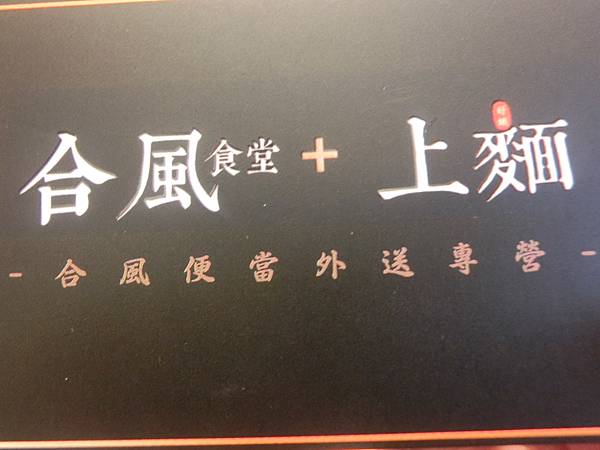 合風食堂 + 上麵
- 合風便當外送專營 -